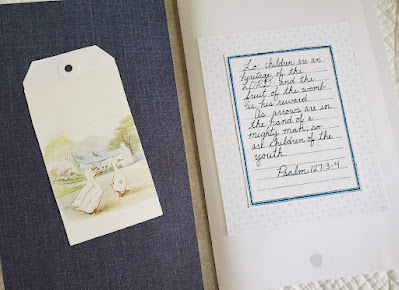 Lo children are an
heritage of the
LORD and the
fruit of the womb
is his reward.
As arrows are in
the hand of a
mighty man, so
are children of the
youth.
Psalm 127:3-4